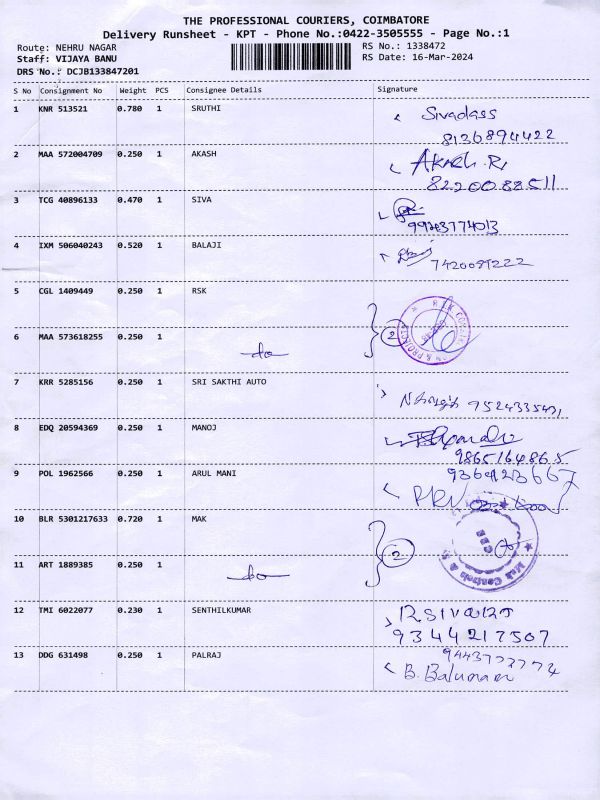 THE PROFESSIONAL COURIERS, COIMBATORE
Delivery Runsheet - KPT - Phone No.:0422-3505555 - Page No.:1
Route: NEHRU NAGAR RS No.: 1338472
Staff: VIJAYA BANU RS Date: 16-Mar-2024
DRS No.: DCJB133847201
S No Consignment No Weight PCS Consignee Details Signature
1 KNR 513521 0.780 1 SRUTHI Sivadass
8136894422
2 MAA 572004709 0.250 1 AKASH Akash.R
8220088511
3 TCG 40896133 0.470 1 SIVA
4 IXM 506040243 0.520 1 BALAJI
5 CGL 1409449 0.250 1 RSK
6 MAA 573618255 0.250 1 do 2
7 KRR 5285156 0.250 1 SRI SAKTHI AUTO
8 EDQ 20594369 0.250 1 MANOJ
9865164865
9 POL 1962566 0.250 1 ARUL MANI
10 BLR 5301217633 0.720 1 MAK
11 ART 1889385 0.250 1 do 2
12 TMI 6022077 0.230 1 SENTHILKUMAR
9344217507
13 DDG 631498 0.250 1 PALRAJ